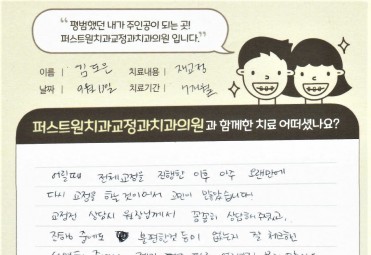 “평범했던 내가 주인공이 되는 곳!
퍼스트원치과교정과치과의원 입니다.”
이름 | 김도은 치료내용 | 재교정
날짜 | 9월 11일 치료기간 | 7개월
퍼스트원치과교정과치과의원과 함께한 치료 어떠셨나요?
어릴때 전체교정을 진행한 이후 아주 오랜만에
다시 교정을 하는 것이어서 고민이 많았습니다
교정전 상담시 원장님께서 꼼꼼히 상담해주시고,
진행 중에도 불편한건 등이 없는지 잘 체크한